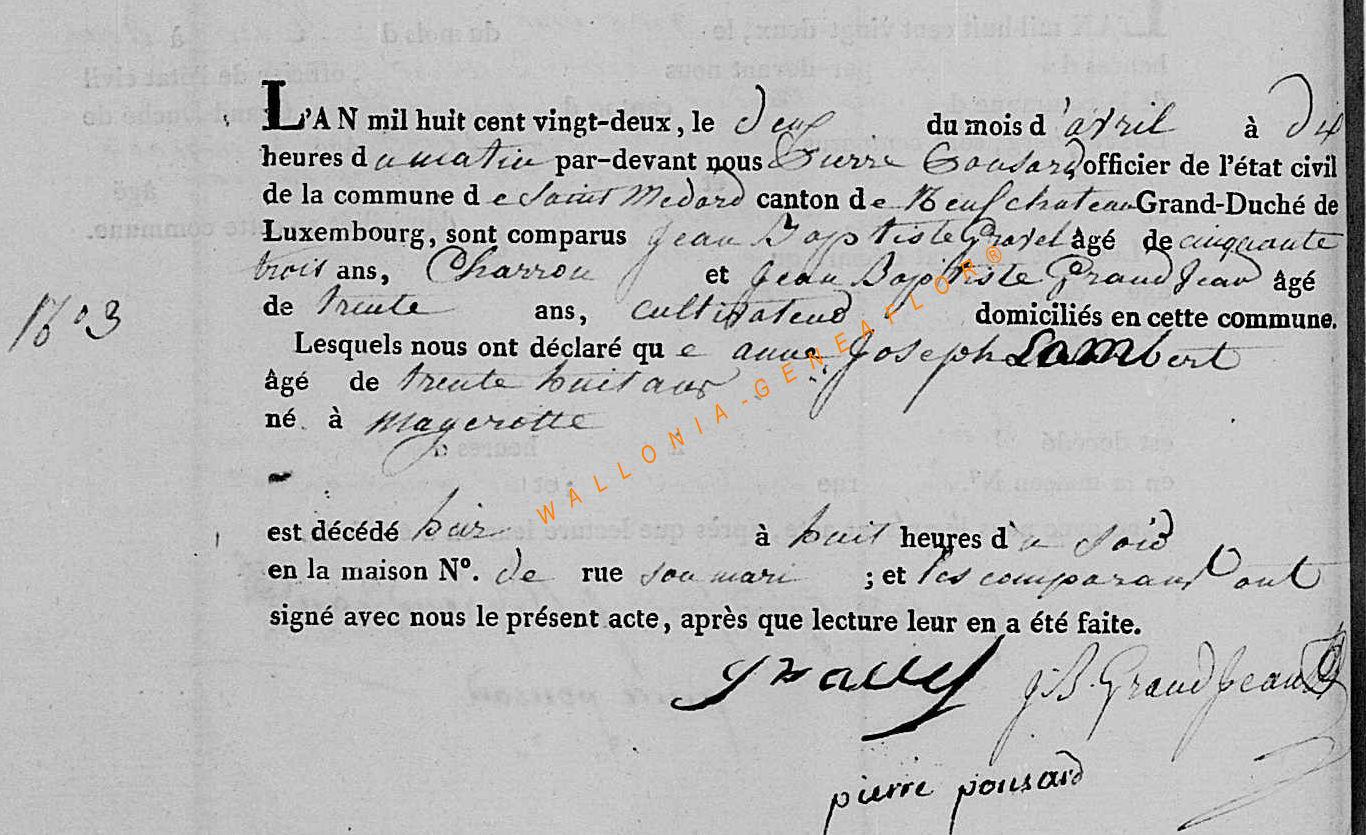 L'AN mil huit cent vingt-deux, le deux du mois d'avril à dix
heures du matin par-devant nous Pierre Pousard officier de l'état civil
de la commune de Saint Medard canton de Neufchateau Grand-Duché de
Luxembourg, sont comparus Jean Baptiste âgé de cinquante
trois ans, Charron et Jean Baptiste Grand Jean âgé
de trente ans, cultivateur domiciliés en cette commune.
N° 3
Lesquels nous ont déclaré que anne Joseph Lambert
âgé de trente huit ans
né à Magerotte
est décédé hier à huit heures du soir
en la maison N°. de rue son mari ; et les comparans ont
signé avec nous le présent acte, après que lecture leur en a été faite.
J.B. Grand Jean
pierre pousard
WALLONIA-GENEAFLOR®